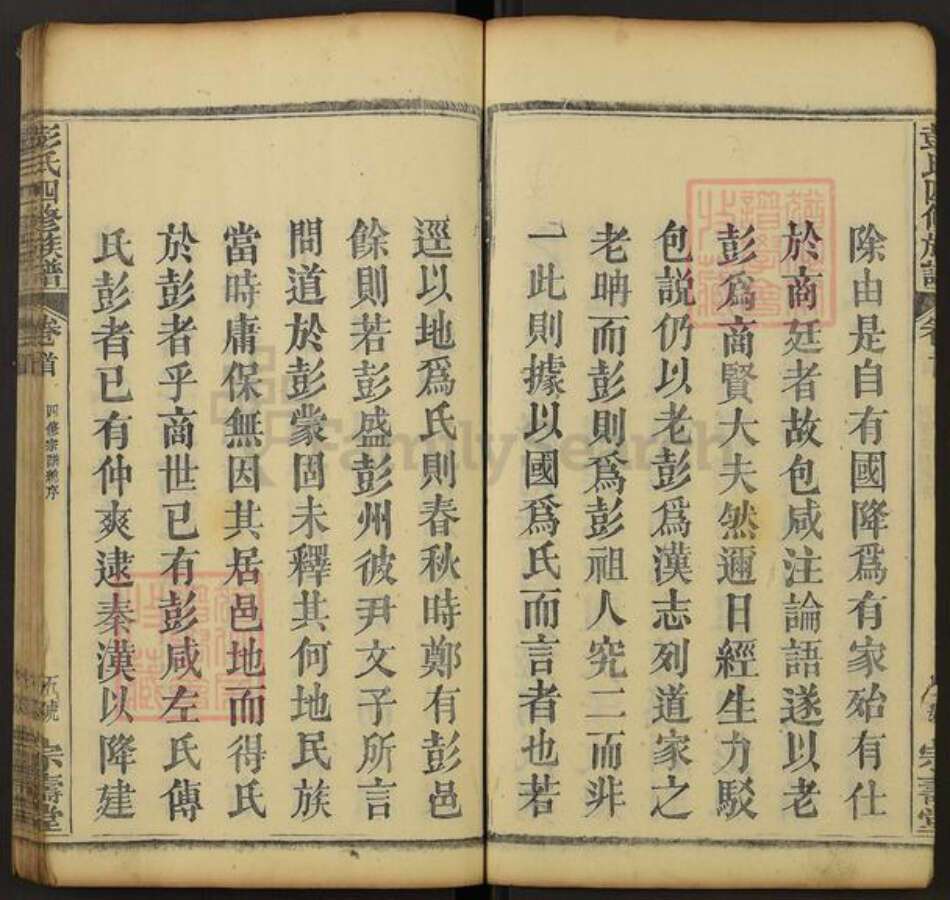 除由是自有國降爲有家殆有仕
於商廷者故包咸注論語遂以老
彭爲商賢大夫然邇日經生力駁
包說仍以老彭爲漢志列道家之
老聃而彭則爲彭祖人究二而非
一此則據以國爲氏而言者也若
逕以地爲氏則春秋時鄭有彭邑
餘則若彭盛彭州彼尹文子所言
問道於彭蒙固未釋其何地民族
當時庸保無因其居邑地而得氏
於彭者乎商世已有彭咸左氏傳
氏彭者已有仲爽逮秦漢以降建
彭氏四修族譜
卷首
四修宗譜總序
宗壽堂
彭氏四修族譜
宗壽堂
FamilySearch